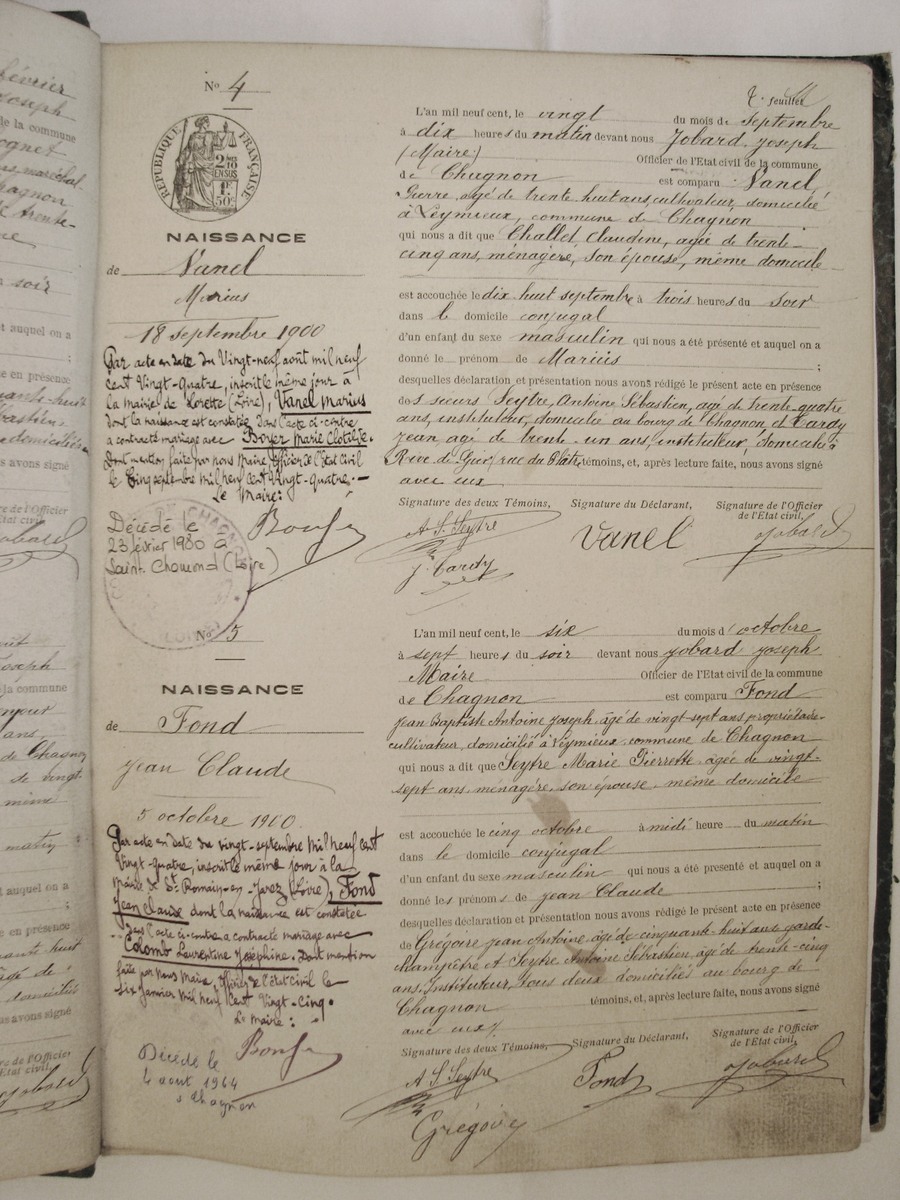 février
Joseph
de la commune
chagnon
trente-
soir
et auquel on a
;
en présence
Sébastien
domiciliés
avons signé
de l'Officier
l'Etat civil,
Jobard
Joseph
la commune
ans
de Chagnon
de vingt
même
matin
auquel on a
;
en présence
huit
âgé de
domiciliés
avons signé
de l'Officier
l'Etat civil,
Jobard
N° 4
RÉPUBLIQUE FRANÇAISE
2/10
EN SUS
1F.
50c
NAISSANCE
de Vanel
Marius
18 septembre 1900
Par acte en date du Vingt-neuf août mil neuf
cent Vingt-quatre, inscrit le même jour à
la mairie de Lorette (Loire), Vanel Marius
dont la naissance est constatée dans l'acte ci-contre
a contracté mariage avec Boyer Marie Clotilde.
Dont mention faite par nous Maire, officier de l'état civil
le cinq septembre mil neuf cent Vingt-quatre.-
Le Maire:
Décédé le
23 février 1980 à
Saint-Chamond (Loire)
feuillet
L'an mil neuf cent, le vingt du mois de Septembre
à dix heures du matin devant nous Jobard Joseph
(Maire) Officier de l'Etat civil de la commune
de Chagnon est comparu Vanel
Pierre, agé de trente huit ans cultivateur, domicilié
à Leymieux, commune de Chagnon
qui nous a dit que Challet Claudine, agée de trente-
cinq ans, ménagère, son épouse, même domicile
est accouchée le dix huit septembre à trois heures du soir
dans le domicile conjugal
d'un enfant du sexe masculin qui nous a été présenté et auquel on a
donné le prénom de Marius ;
desquelles déclaration et présentation nous avons rédigé le présent acte en présence
des sieurs Seytre, Antoine Sébastien, agé de trente-quatre
ans, instituteur, domicilié au bourg de Chagnon et Cardy
Jean agé de trente un ans, instituteur, domicilié à
Rive de Gier, rue du témoins, et, après lecture faite, nous avons signé
avec eux
Signature des deux Témoins, Signature du Déclarant, Signature de l'Officier
de l'Etat civil,
A S Seytre Vanel Jobard
J. Cardy
N° 5
NAISSANCE
de Fond
Jean Claude
5 octobre 1900
Par acte en date du vingt-septembre mil neuf cent
Vingt-quatre, inscrit le même jour à la
Mairie de St Romain-en-Jarez (Loire), Fond
Jean Claude dont la naissance est constatée
dans l'acte ci-contre a contracté mariage avec
Colomb Laurentine Joséphine. Dont mention
faite par nous Maire, officier de l'état civil le
six Janvier mil neuf cent Vingt-cinq.
Le Maire:
Décédé le
4 août 1964
à Chagnon
L'an mil neuf cent, le six du mois d'octobre
à sept heures du soir devant nous Jobard Joseph
Maire Officier de l'Etat civil de la commune
de Chagnon est comparu Fond
Jean Baptiste Antoine Joseph, âgé de vingt-sept ans propriétaire-
cultivateur, domicilié à Leymieux, commune de Chagnon
qui nous a dit que Seytre Marie Pierrette, agée de vingt-
sept ans, ménagère, son épouse, même domicile
est accouchée le cinq octobre à midi heure du matin
dans le domicile conjugal
d'un enfant du sexe masculin qui nous a été présenté et auquel on a
donné les prénoms de Jean Claude ;
desquelles déclaration et présentation nous avons rédigé le présent acte en présence
de Grégoire Jean Antoine, âgé de cinquante-huit ans garde-
champêtre et Seytre Antoine Sébastien, agé de trente-cinq
ans, Instituteur, tous deux domiciliés au bourg de
Chagnon témoins, et, après lecture faite, nous avons signé
avec eux
Signature des deux Témoins, Signature du Déclarant, Signature de l'Officier
de l'Etat civil,
A S Seytre Fond Jobard
Grégoire